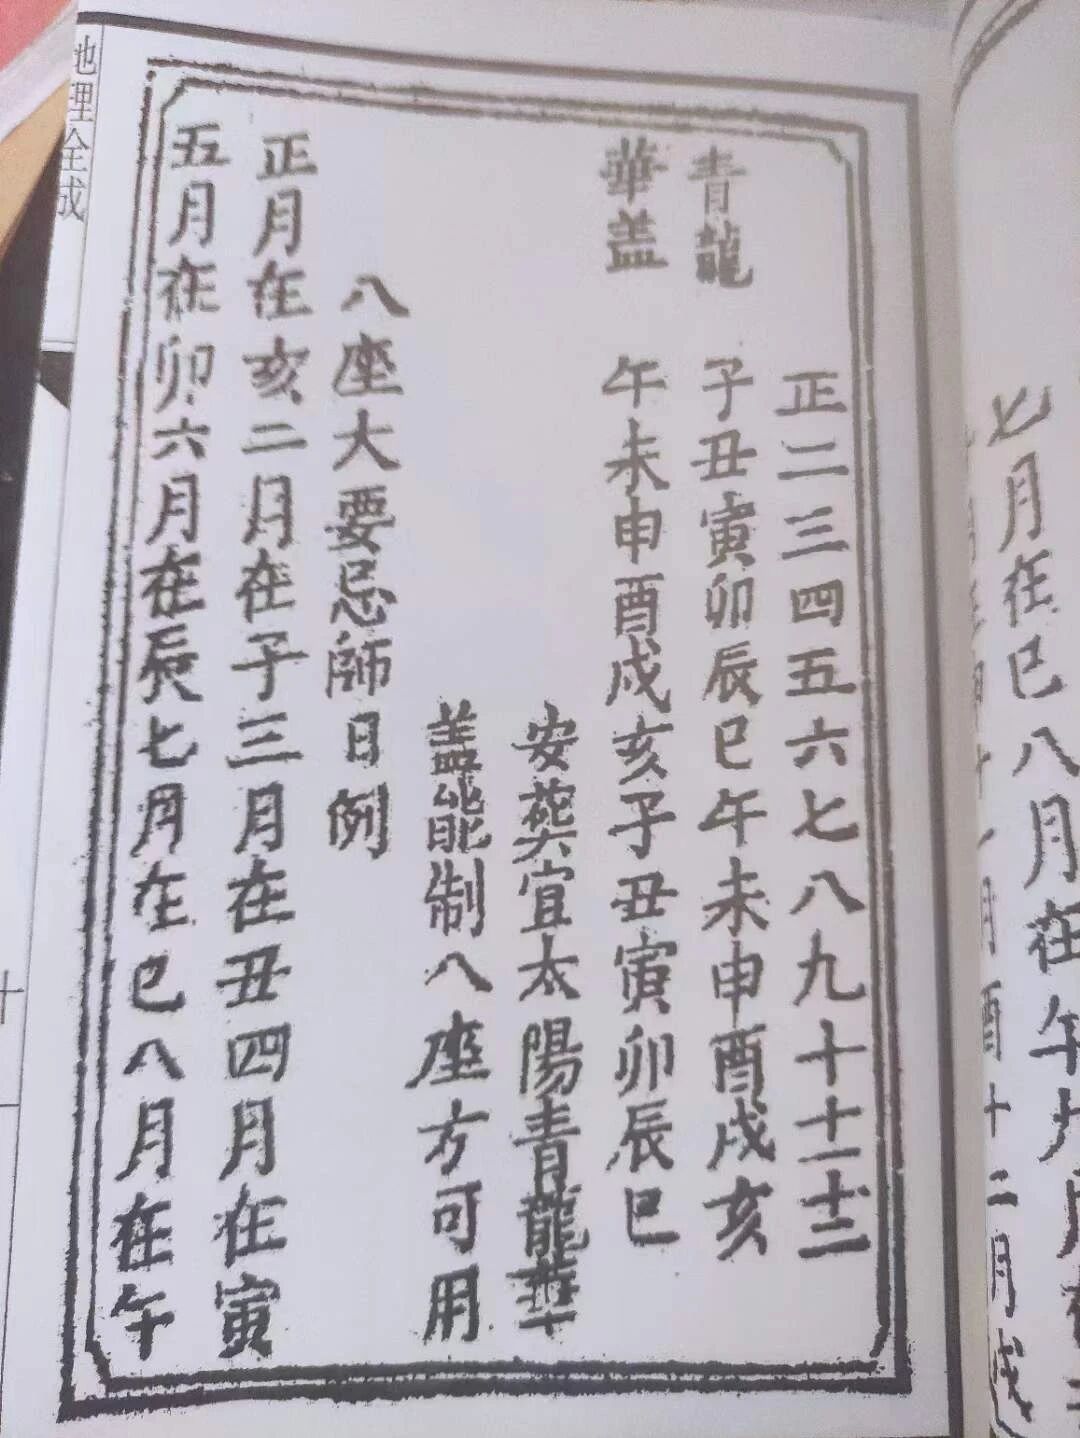 正二三四五六七八九十十一十二
青龍 子丑寅卯辰巳午未申酉戌亥
華盖 午未申酉戌亥子丑寅卯辰巳
安葬宜太陽青龍華
盖能制八座方可用
八座大要忌師日例
正月在亥二月在子三月在丑四月在寅
五月在卯六月在辰七月在巳八月在午
地理全成
十
七月在巳八月在午
月酉十二月戌